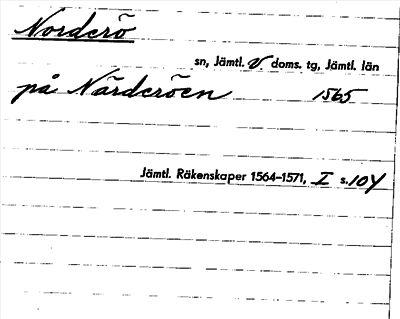 Norderö
sn, Jämtl. V doms. tg, Jämtl. län
på Närderöen 1565
Jämtl. Räkenskaper 1564–1571, I s. 104